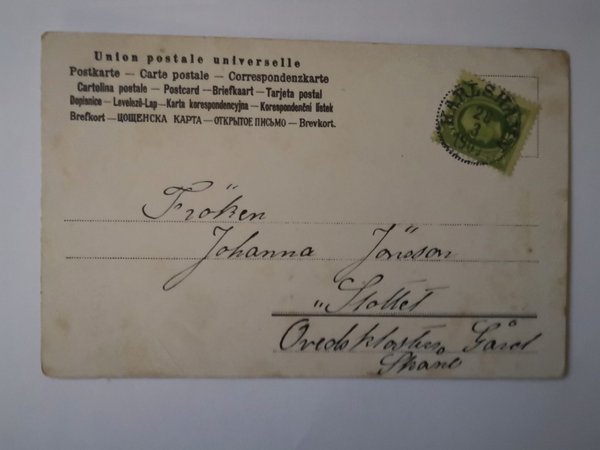 Union postale universelle
Postkarte — Carte postale — Correspondenzkarte
Cartolina postale — Postcard — Briefkaart — Tarjeta postal
Dopisnice — Levelező-Lap — Karta korespondencyjna — Korespondenční lístek
Brefkort — ЦОЩЕНСКА КАРТА — ОТКРЫТОЕ ПИСЬМО — Brevkort.
KARLSHAMN
Fröken
Johanna Jönsson
„Slottet
Ovedskloster Gård
Skåne